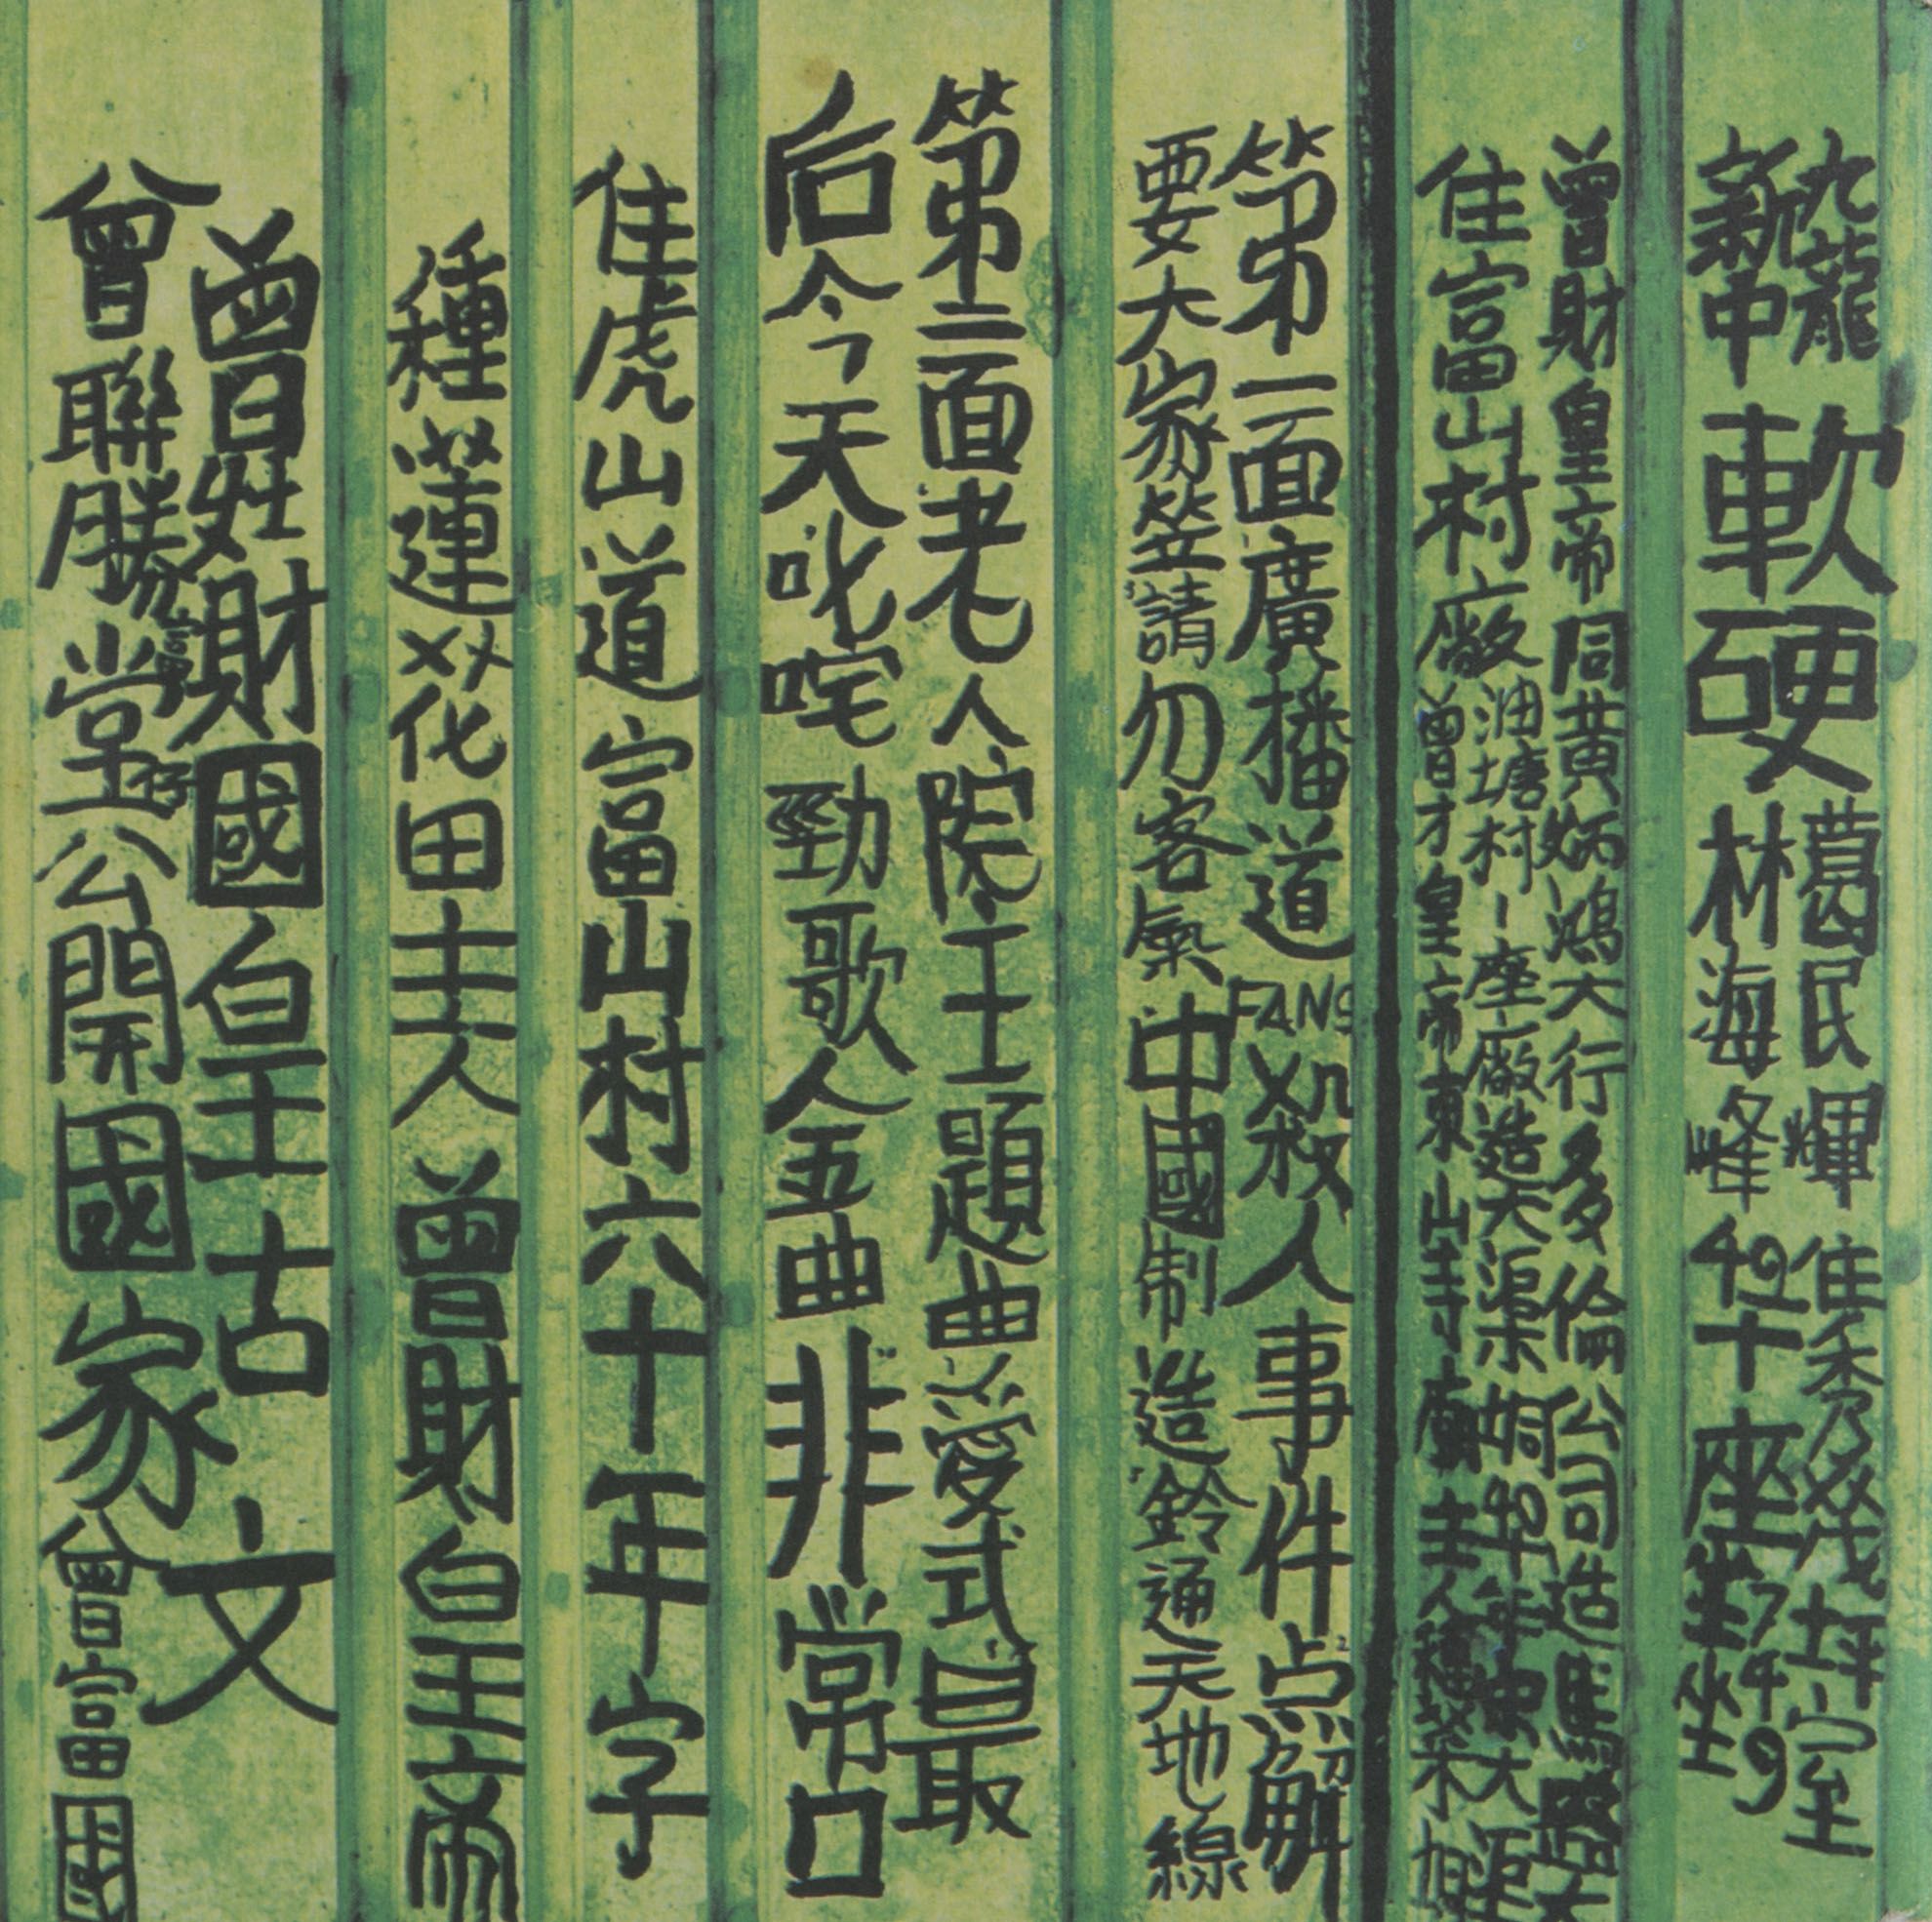 九龍
新中
軟硬
葛民輝 住秀茂坪 室
林海峰 49十座 749
曾財皇帝 同黃炳鴻大行多倫公司造馬
油塘村 一座廠造天渠
住富山村廠 曾才皇帝東山寺廟主人
第一面廣播道FANS殺人事件点解
要大家笠請勿客氣中國制造鈴通天地線
第二面老人院王題曲愛式最
后今今天叱咤勁歌金曲非常口
住虎山道富山村六十年字
種蓮花田夫人曾財皇帝
曾日姓財國皇古文
曾聯勝堂公開國家曾富國